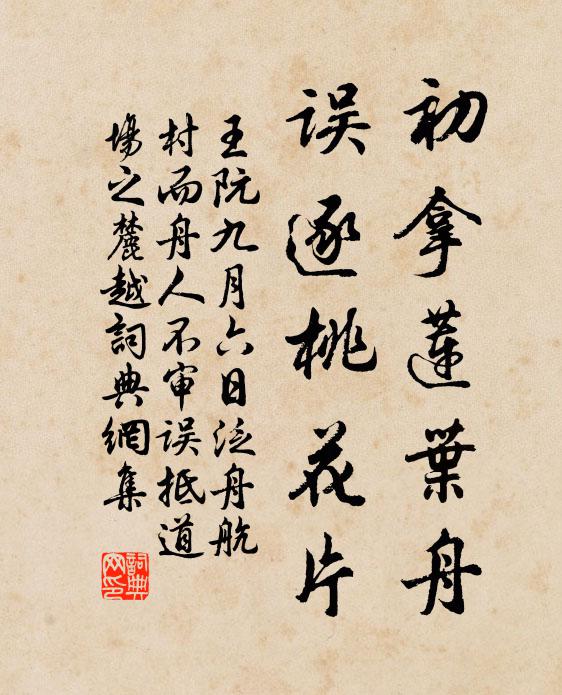 初拿莲葉舟
误逐桃花片
王阮九月六日泛舟航
村而舟人不审误抵道
場之麓越詞典網集
詞典网印